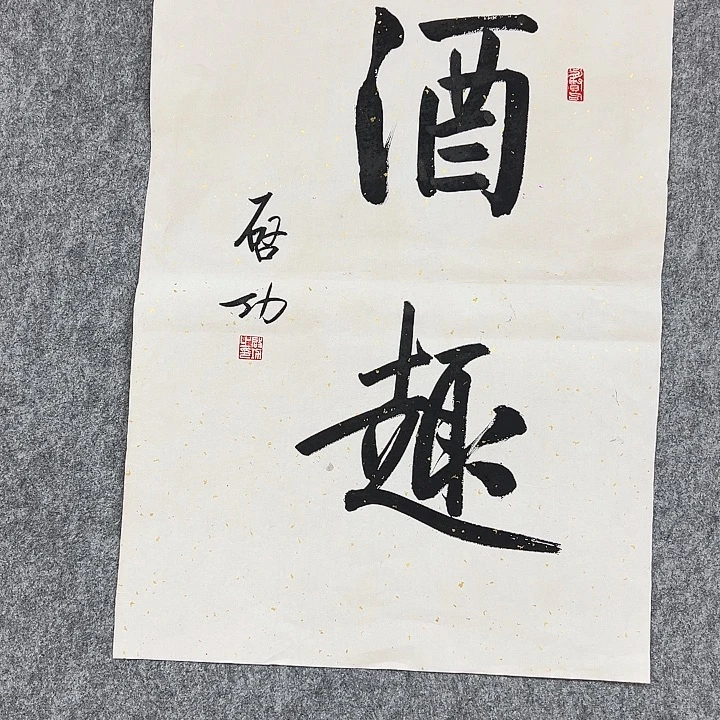 酒趣
启功